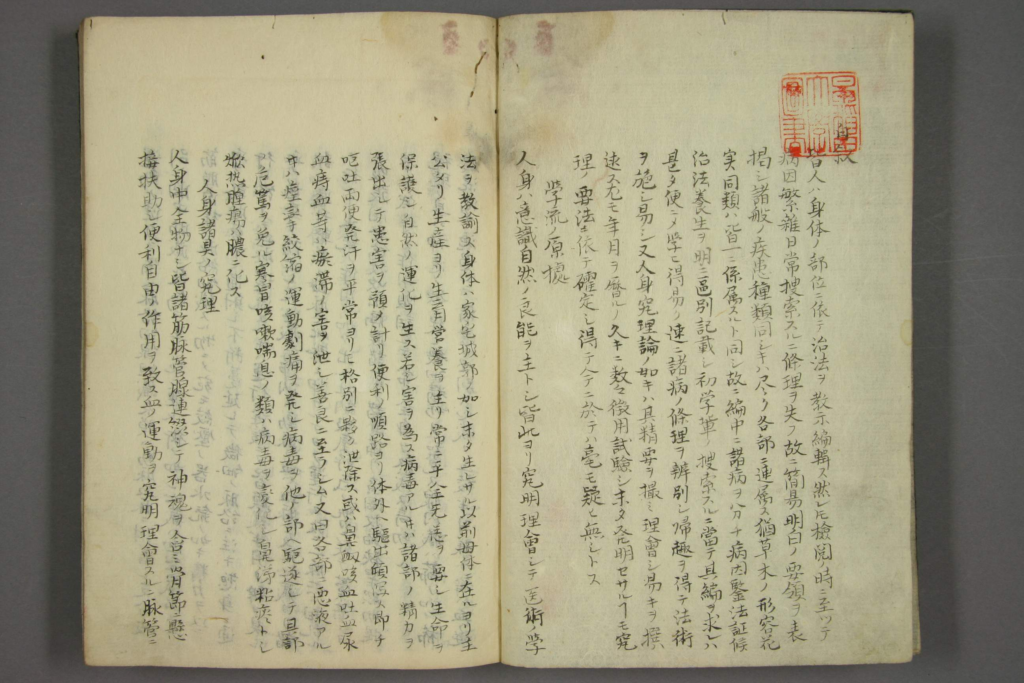 自叙
昔人ハ身体ノ部位ニ依テ治法ヲ教示編輯ス然レ𪜈檢閲ノ時ニ至ツテ
病因繁雜日常搜索スルニ條理ヲ失フ故ニ簡易明白ノ要領ヲ表
掲シ諸般ノ疾患種類同シキハ尽ク各部ニ連属ス猶草木ノ形容花
実同類ハ皆一ニ係属スルト同シ故ニ編中ニ諸病ヲ分チ病因鑒法証候
治法養生ヲ明ニ區別記載シ初学輩ノ搜索スルニ當テ其編ヲ求レハ
甚タ便ニシテ学ヒ得易ク速ニ諸病ノ條理ヲ辨別シ帰趣ヲ得テ法術
ヲ施シ易シ又人身究理論ノ如キハ其精要ヲ撮ミ理會シ易キヲ撰
述ス尤モ年月ヲ曆ルノ久キニ数々徴用試驗シ未タ発明セサルヿモ究
理ノ要法ニ依テ確定シ得テ今ニ於テハ毫モ疑ヒ無シトス
学流ノ原據
人身ハ意識自然ノ良能ヲ主トシ皆此ヨリ究明理會シテ医術ノ学
法ヲ教諭ス身体ハ家宅城郭ノ如シ未タ生レサル以前母体ニ在ルヨリ主
公タリ生産ヨリ生育営養ヲ主リ常ニ平全无恙ヲ要シ生命ヲ
保護シ自然ノ運化ヲ生ス若シ害ヲ為ス病毒アル𪜈ハ諸部ノ精力ヲ
張出シテ患害ヲ預メ計リ便利ノ順路ヨリ体外ヘ驅出傾冩ス即チ
吐瀉両便発汗ヲ平常ヨリモ格別ニ夥ク泄除ス或ハ鼻衂咳血吐血尿
血痔血等ハ瘀滞ノ害ヲ泄シ善良ニ至ラシム又曰各部ニ悪液アル
𪜈ハ痙攣絞縮ノ運動劇痛ヲ発シ病毒ヲ他ノ部ヘ駆逐シテ其部
ノ危篤ヲ免ル寒冒咳嗽喘息ノ類ハ病毒ヲ変化シ鼻涕粘痰トシ
焮熱腫瘍ハ膿ニ化ス
人身諸具ノ究理
人身中全物ナシ皆諸筋脉管腺連綴シテ神魂ヲ含ミ四肢節ニ懸
接扶助シ便利自由ノ作用ヲ致ス血ノ運動ヲ究明理會スルニ脉管ニ